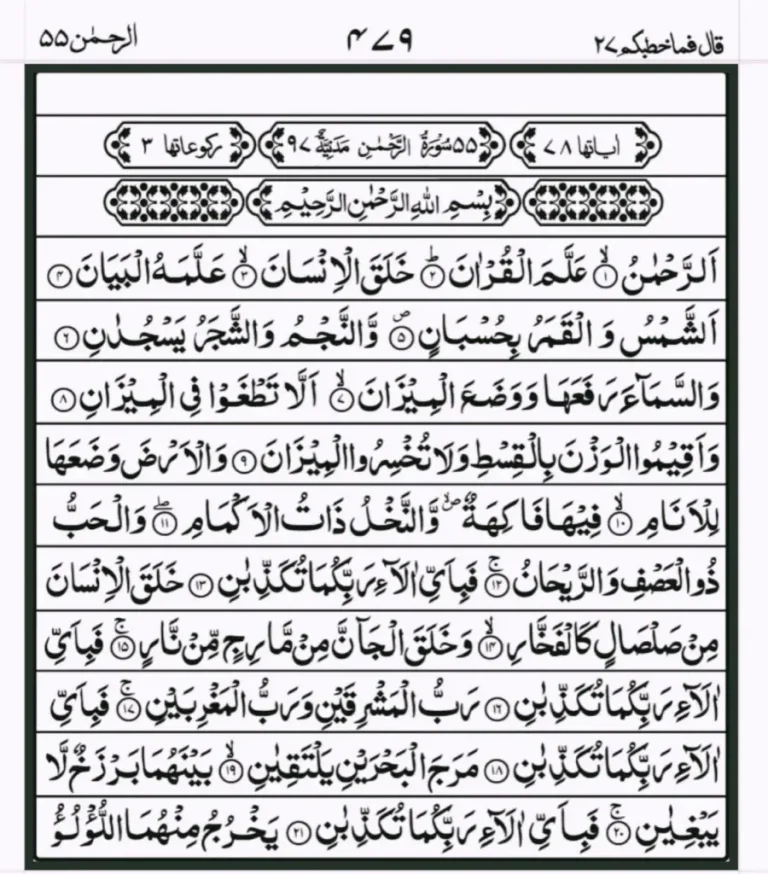 قال فماخطبكم ٢٧ ٤٧٩ الرحمٰن ٥٥
اٰیاتها ٧٨ ٥٥ سُوْرَةُ الرَّحْمٰنِ مَدَنِیَّةٌ ٩٧ رکوعاتها ٣
بِسْمِ اللهِ الرَّحْمٰنِ الرَّحِیْمِ
اَلرَّحْمٰنُ ۙ‏﴿١﴾ عَلَّمَ الْقُرْاٰنَ ؕ‏﴿٢﴾ خَلَقَ الْاِنْسَانَ ۙ‏﴿٣﴾ عَلَّمَهُ الْبَیَانَ ﴿٤﴾
اَلشَّمْسُ وَ الْقَمَرُ بِحُسْبَانٍ ۪‏﴿٥﴾ وَّ النَّجْمُ وَ الشَّجَرُ یَسْجُدٰنِ ﴿٦﴾
وَ السَّمَآءَ رَفَعَهَا وَ وَضَعَ الْمِیْزَانَ ۙ‏﴿٧﴾ اَلَّا تَطْغَوْا فِی الْمِیْزَانِ ﴿٨﴾
وَ اَقِیْمُوا الْوَزْنَ بِالْقِسْطِ وَ لَا تُخْسِرُوا الْمِیْزَانَ ﴿٩﴾ وَ الْاَرْضَ وَضَعَهَا
لِلْاَنَامِ ۙ‏﴿١٠﴾ فِیْهَا فَاكِهَةٌ ۪ۙ وَّ النَّخْلُ ذَاتُ الْاَكْمَامِ ۖ‏﴿١١﴾ وَ الْحَبُّ
ذُو الْعَصْفِ وَ الرَّیْحَانُ ۚ‏﴿١٢﴾ فَبِاَیِّ اٰلَآءِ رَبِّكُمَا تُكَذِّبٰنِ ﴿١٣﴾ خَلَقَ الْاِنْسَانَ
مِنْ صَلْصَالٍ كَالْفَخَّارِ ۙ‏﴿١٤﴾ وَ خَلَقَ الْجَآنَّ مِنْ مَّارِجٍ مِّنْ نَّارٍ ۚ‏﴿١٥﴾ فَبِاَیِّ
اٰلَآءِ رَبِّكُمَا تُكَذِّبٰنِ ﴿١٦﴾ رَبُّ الْمَشْرِقَیْنِ وَ رَبُّ الْمَغْرِبَیْنِ ۚ‏﴿١٧﴾ فَبِاَیِّ
اٰلَآءِ رَبِّكُمَا تُكَذِّبٰنِ ﴿١٨﴾ مَرَجَ الْبَحْرَیْنِ یَلْتَقِیٰنِ ۙ‏﴿١٩﴾ بَیْنَهُمَا بَرْزَخٌ لَّا
یَبْغِیٰنِ ۚ‏﴿٢٠﴾ فَبِاَیِّ اٰلَآءِ رَبِّكُمَا تُكَذِّبٰنِ ﴿٢١﴾ یَخْرُجُ مِنْهُمَا اللُّؤْلُؤُ